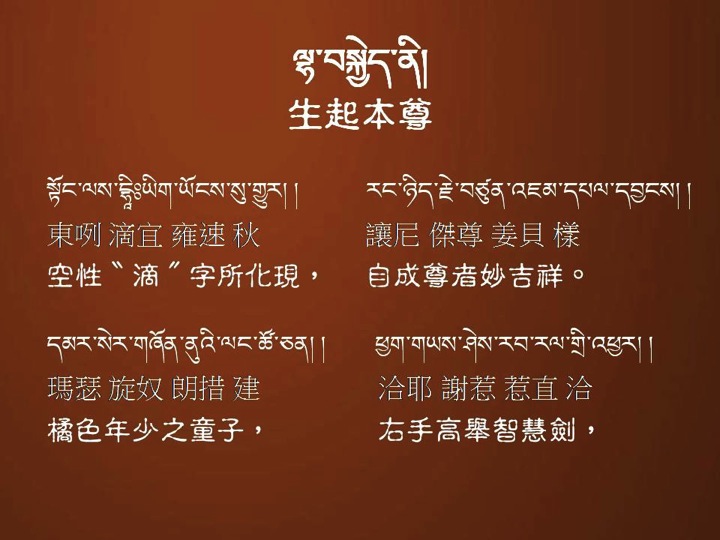 ལྷ་བསྐྱེད་ནི།
生起本尊
སྟོང་ལས་དྷཱིཿཡིག་ཡོངས་སུ་གྱུར། །
東咧 滴宜 雍速 秋
空性〝滴〞字所化現，
རང་ཉིད་རྗེ་བཙུན་འཇམ་དཔལ་དབྱངས། །
讓尼 傑尊 姜貝 樣
自成尊者妙吉祥。
དམར་སེར་གཞོན་ནུའི་ལང་ཚོ་ཅན། །
瑪瑟 旋奴 朗措 建
橘色年少之童子，
ཕྱག་གཡས་ཤེས་རབ་རལ་གྲི་འཕྱར། །
洽耶 謝惹 惹直 洽
右手高舉智慧劍，